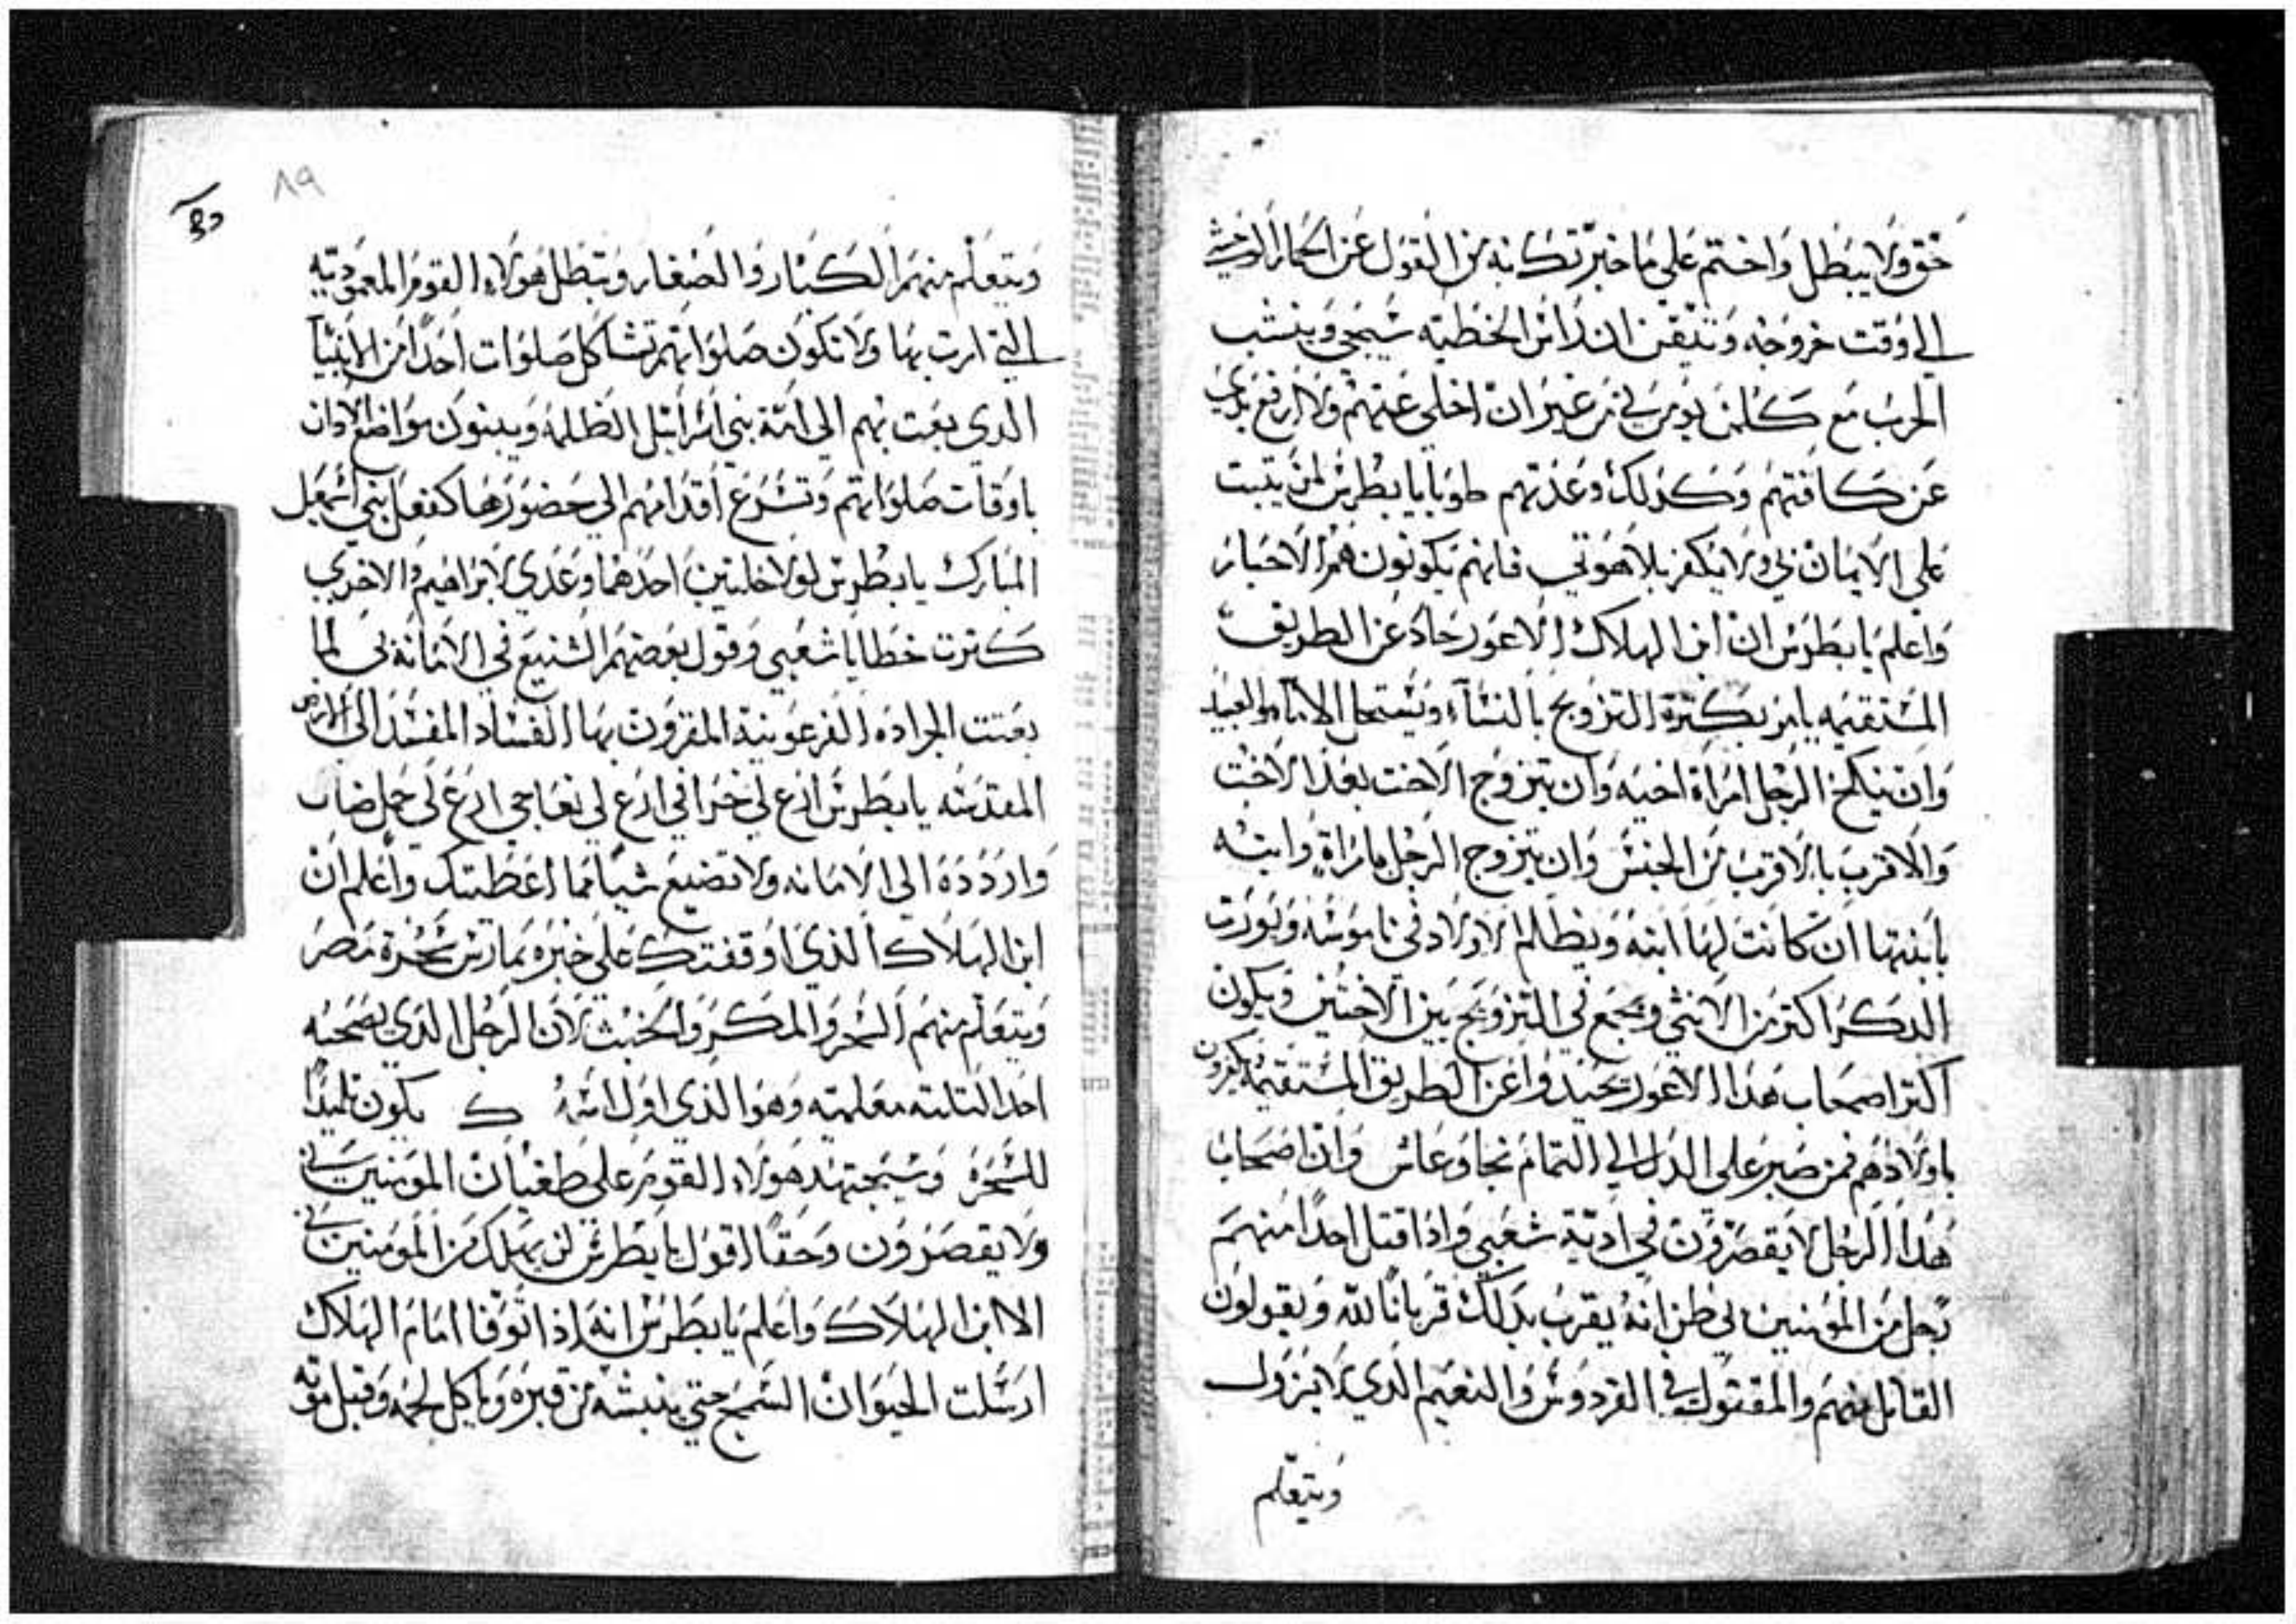 حق ولا يبطل واختم على ما خبرتك به من القول عن الحمار الوحشي
الي وقت خروجه وتيقن ان دانس الخطيه سيجي وينشب
الحرب مع كلمن يومن بي من غير ان اخلي عنهم ولا ارفع يدي
عن كافتهم وكدلك وعدتهم طوبا يا بطرس لمن يتبت
على الايمان بي ولا يكفر بلاهوتي فانهم يكونون هم الاخيار
واعلم يا بطرس ان ابن الهلاك الاعور حاد عن الطريق
المستقيمه يامر بكترة التزويج بالنساء ويستحل الاماء والعبيد
وان ينكح الرجل امراة اخيه وان يتزوج الاخت بعد الاخت
والاقرب بالاقرب من الجنس وان يتزوج الرجل بامراة وابنه
بابنتها ان كانت لها ابنه ويظلم الاولاد في ناموسه ويورت
الدكر اكتر من الانثي ويجمع في التزويج بين الاختين ويكون
اكتر اصحاب هدا الاعور يحيدوا عن الطريق المستقيمه يكفرون
باولادهم فمن صبر على الدل الي التمام نجا وعاش وان اصحاب
هدا الرجل لا يقصرون في ادية شعبي واذا قتل احدا منهم
رجل من المومنين بي ظن انه يقرب بدلك قربانا لله ويقولون
القاتل منهم والمقتول في الفردوس والنعيم الدي لا يزول
ويتعلم
٨٩
ويتعلم منهم الكبار والصغار ويبطل هولاء القوم المعموديه
التي امرت بها ولا تكون صلواتهم تشاكل صلوات احدا من الانبيآ
الدي بعت بهم الي امة بني اسرائيل الظلمه ويبنون مواضع الادان
باوقات صلواتهم وتسرع اقدامهم الي حضورها كفعل بني اسمعيل
المبارك يا بطرس لولا خلتين احدهما وعدي لابراهيم والاخري
كترت خطايا شعبي وقول بعضهم الشنيع في الامانة بي لما
بعتت الجراده الفرعونية المقرون بها الفساد المفسد الى الارض
المقدسه يا بطرس ارع لي خرافي ارع لي نعاجي ارع لي حمل ضاب
وارددة الي الامانه ولا تضيع شيا مما اعطيتك واعلم ان
ابن الهلاك الذي اوقفتك على خبره يمارس سحرة مصر
ويتعلم منهم السحر والمكر والخبث لان الرجل الدي يصحبه
احد التلته معلميه وهو الذي اول اسمه ك يكون تلميدا
للسحرة وسيجتهد هولاء القوم على طغيان المومنين بي
ولا يقصرون وحقا اقول يا بطرس لن يهلك من المومنين بي
الا ابن الهلاك واعلم يا بطرس انه اذا توفا امام الهلاك
ارسلت الحيوان السمج حتي ينبشه من قبره وياكل لحمه وقبل موته